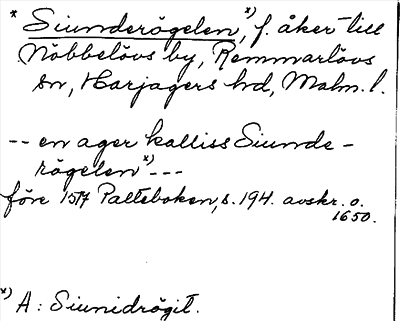 * Siunderögelen,ˣ⁾ f. åker till
Nöbbelövs by, Remmarlövs
sn, Harjagers hd, Malm. l.
-- en ager kalliss Siunde-
rögelenˣ⁾ ---
före 1517 Palteboken, s. 194. avskr. o.
1650.
ˣ⁾ A: Siunidrögit.